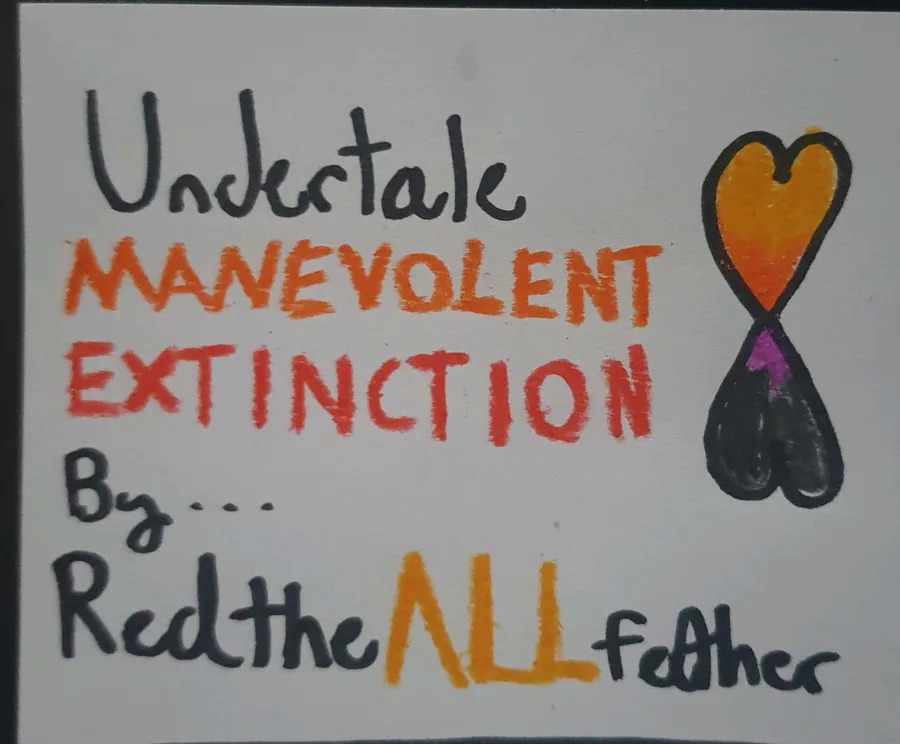 Undertale
MANEVOLENT
EXTINCTION
By...
RedtheALLfeather